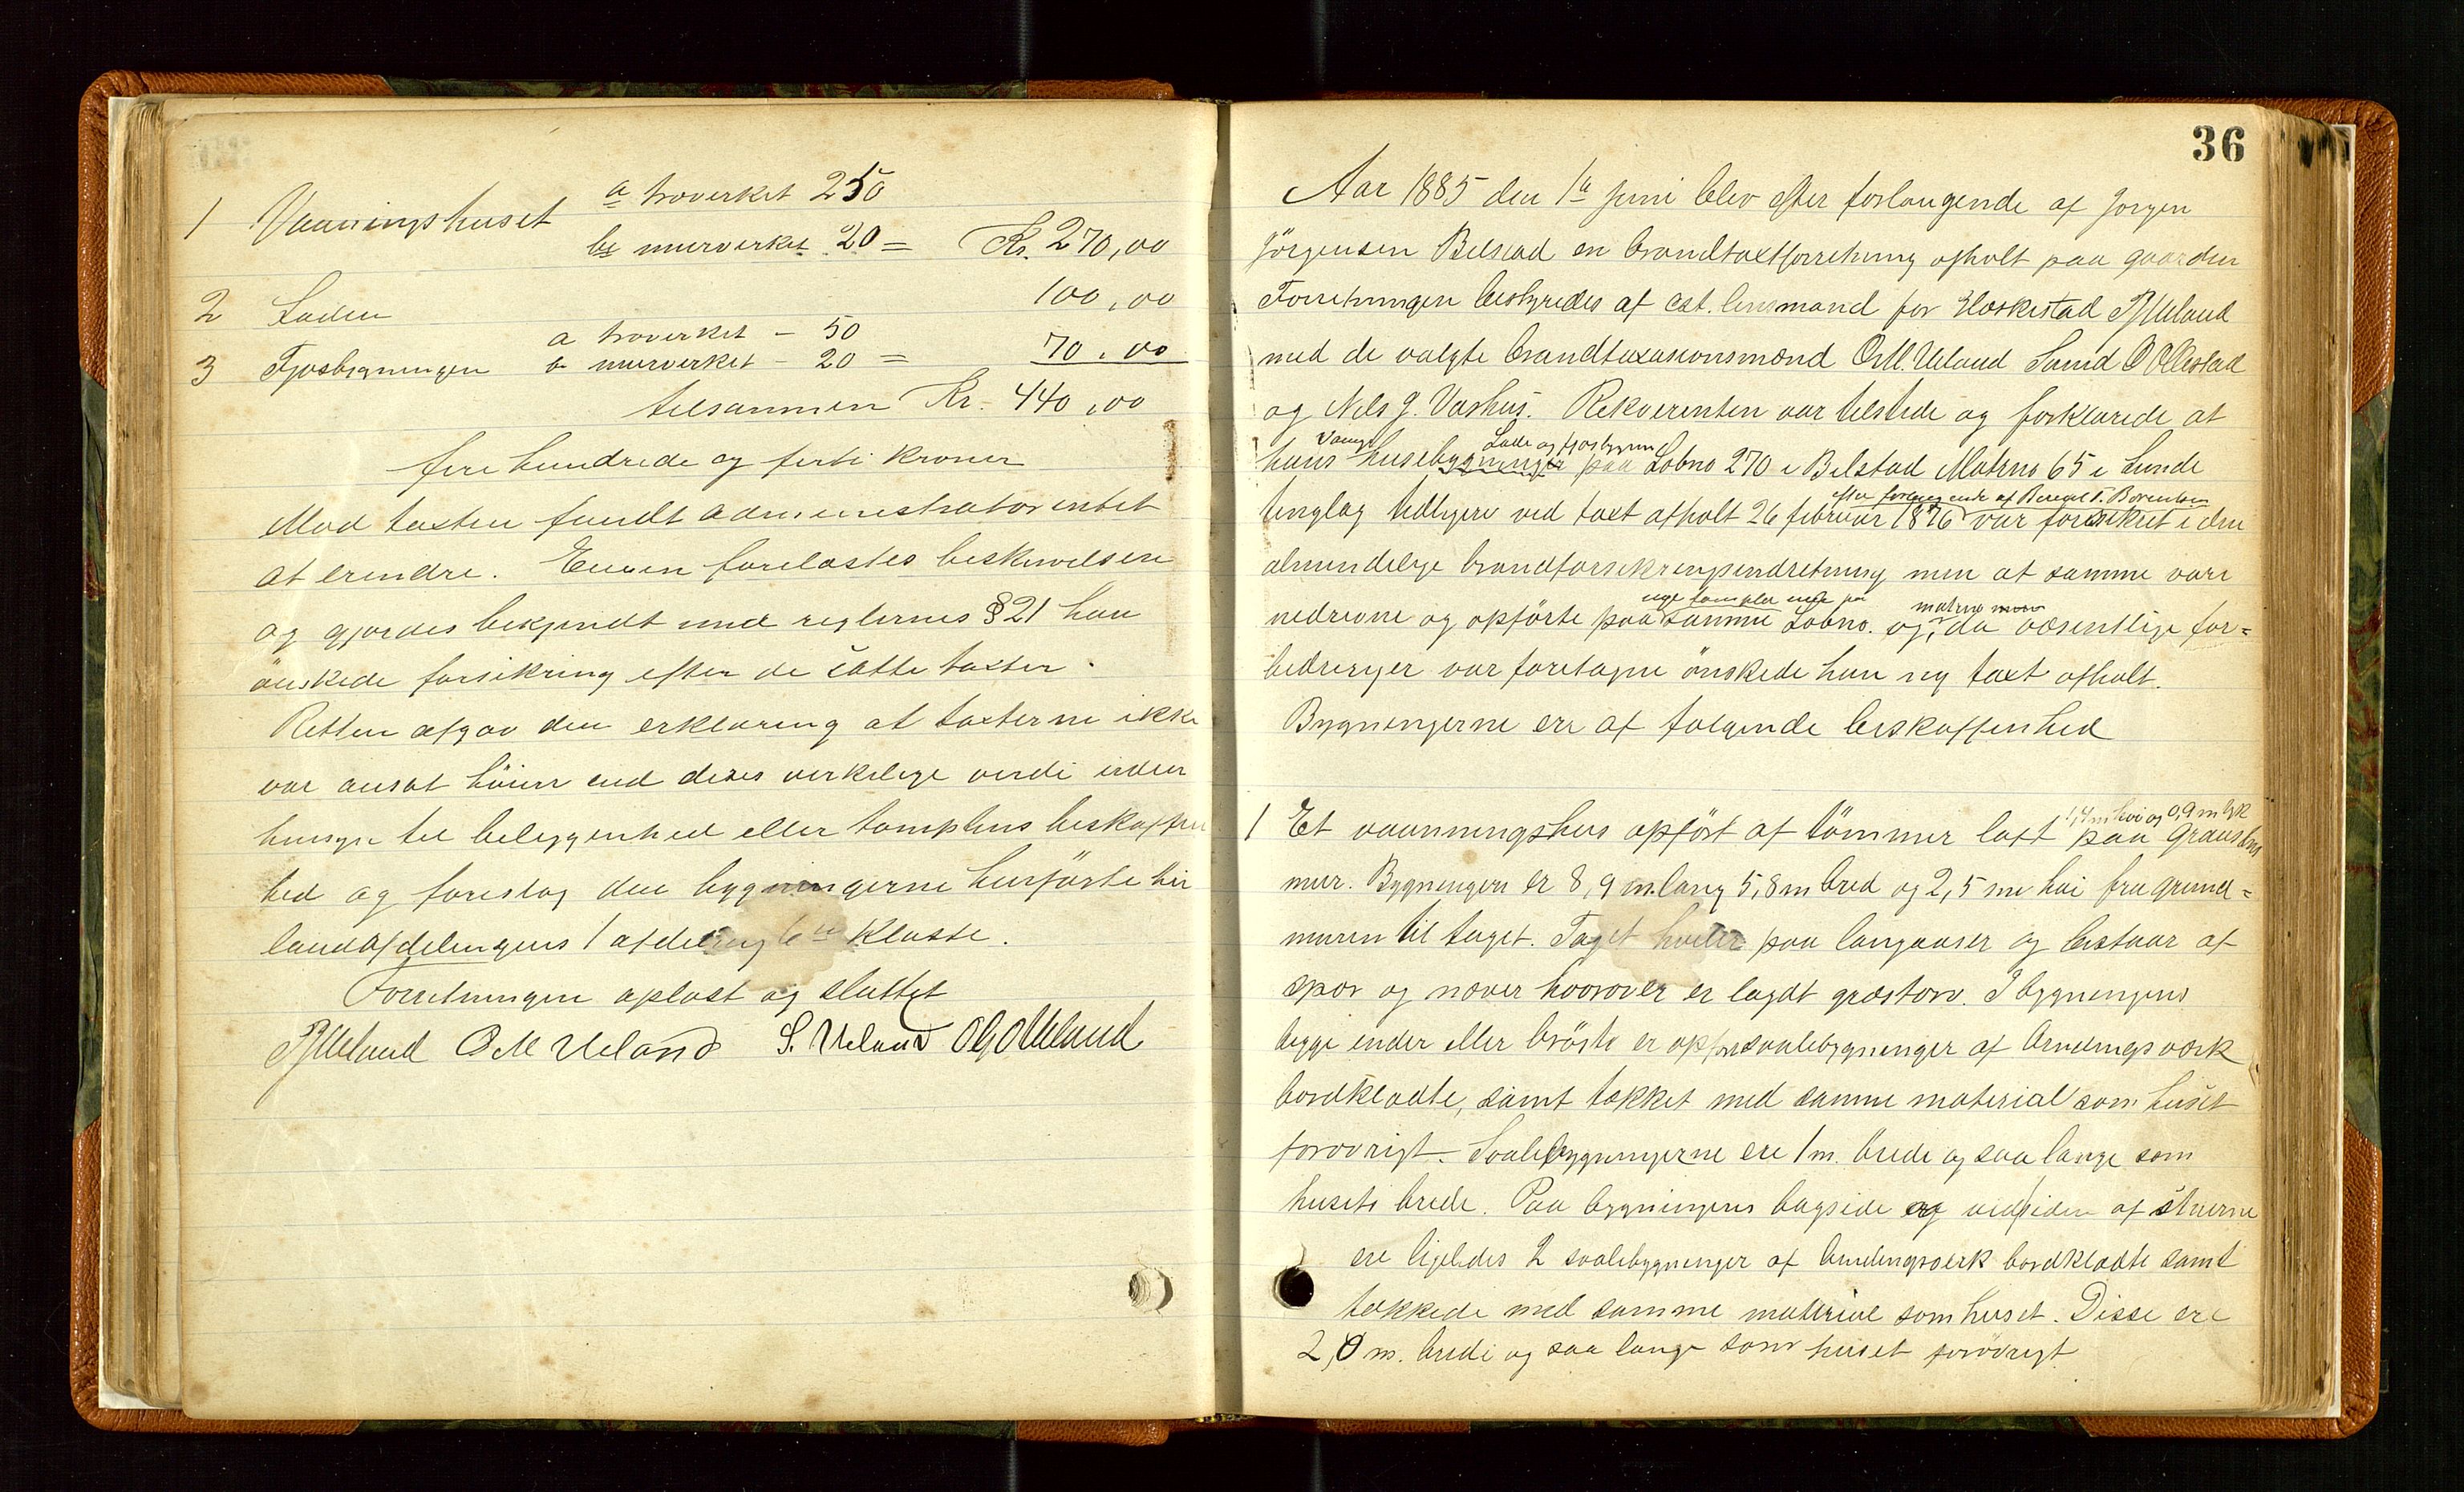 1 Vaaningshuset a troverket 250
b murverket 20 = Kr. 270,00
2 Laden 100,00
3 Fjosbygningen a troverket - 50
b murverket - 20 = 70,00
tilsammen Kr. 440,00
fire hundrede og forti kroner
Mod taxten fandt administrator intet
at erindre. Eieren forelæstes beskrivelsen
og gjordes bekjendt med reglernes § 21 han
önskede forsikring efter de satte taxter.
Retten afgav den erklæring at taxterne ikke
var ansat höiere end deres virkelige verdi uden
hensyn til beliggenhed eller tomptens beskaffen
hed og foreslog den bygningerne henförte til
landafdelingens 1 afdeling 6te Klasse.
Forretningen oplæst og sluttet
PJUeland O M Ueland S. Ueland
36
Aar 1885 den 1te juni blev efter forlangende af Jorgen
Jörgensen Belstad en brandtaxtforretning afholt paa gaarden
Forretningen bestyredes af cst. lensmand for Heskestad PJUeland
med de valgte brandtaxasionsmænd O.M. Ueland Svend O Ollestad
og Nels J. Vashus. Rekvirenten var tilstede og forklarede at
Vaanings Lade og fjosbygning
hans husebygninger paa Lobno 270 i Belstad Matrno 65 i Lunde
efter forlangende af T. Børentsen
tinglag tidligere ved taxt afholt 26 februar 1876 var forsikret i den
almindelige brandforsikringsindretning men at samme vare
nye tompter med paa matrno
nedrevne og opförte paa samme Lobno. og, da væsentlige for=
bedringer var foretagne önskede han ny taxt afholt.
Bygningerne ere af folgende beskaffenhed
1,4 m höi og 0,9 m tyk
1 Et vaaningshus opfört af tömmer laft paa graastens
mur. Bygningen er 8,9 m lang 5,8 m bred og 2,5 m höi fra grund=
muren til taget. Taget hviler paa langaaser og bestaar af
spor og næver hvorover er lagdt græstorv. I bygningens
begge ender eller bröste er opfört svalebygninger af bindingsværk
bordklædte, samt tækket med samme material som huset
forövrigt. Svalebygningerne ere 1 m. brede og saa lange som
husets brede. Paa bygningens bagside og ved siden af stuerne
ere ligeledes 2 svalebygninger af bindingsverk bordklædte samt
tækkede med samme materiale som huset. Disse ere
2,0 m. brede og saa lange som huset forövrigt